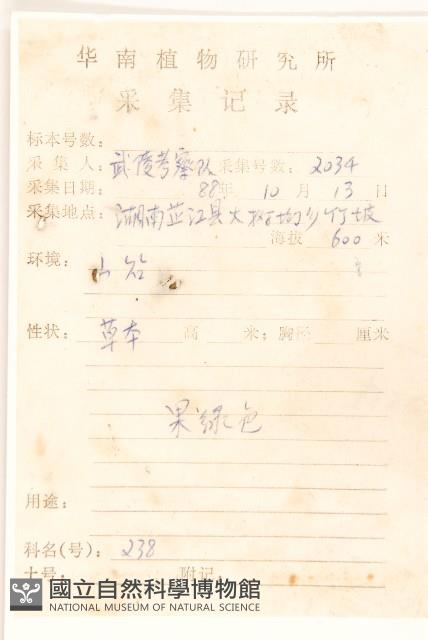 华南植物研究所
采集记录
标本号数：
采集人：武陵考察队 采集号数：2034
采集日期 88年 10月 13日
采集地点：湖南芷江县大树坳乡竹坡
海拔 600 米
环境：山谷
性状：草本 高 米；胸径 厘米
果绿色
用途：
科名(号)：238
土名： 附记：
國立自然科學博物館
NATIONAL MUSEUM OF NATURAL SCIENCE